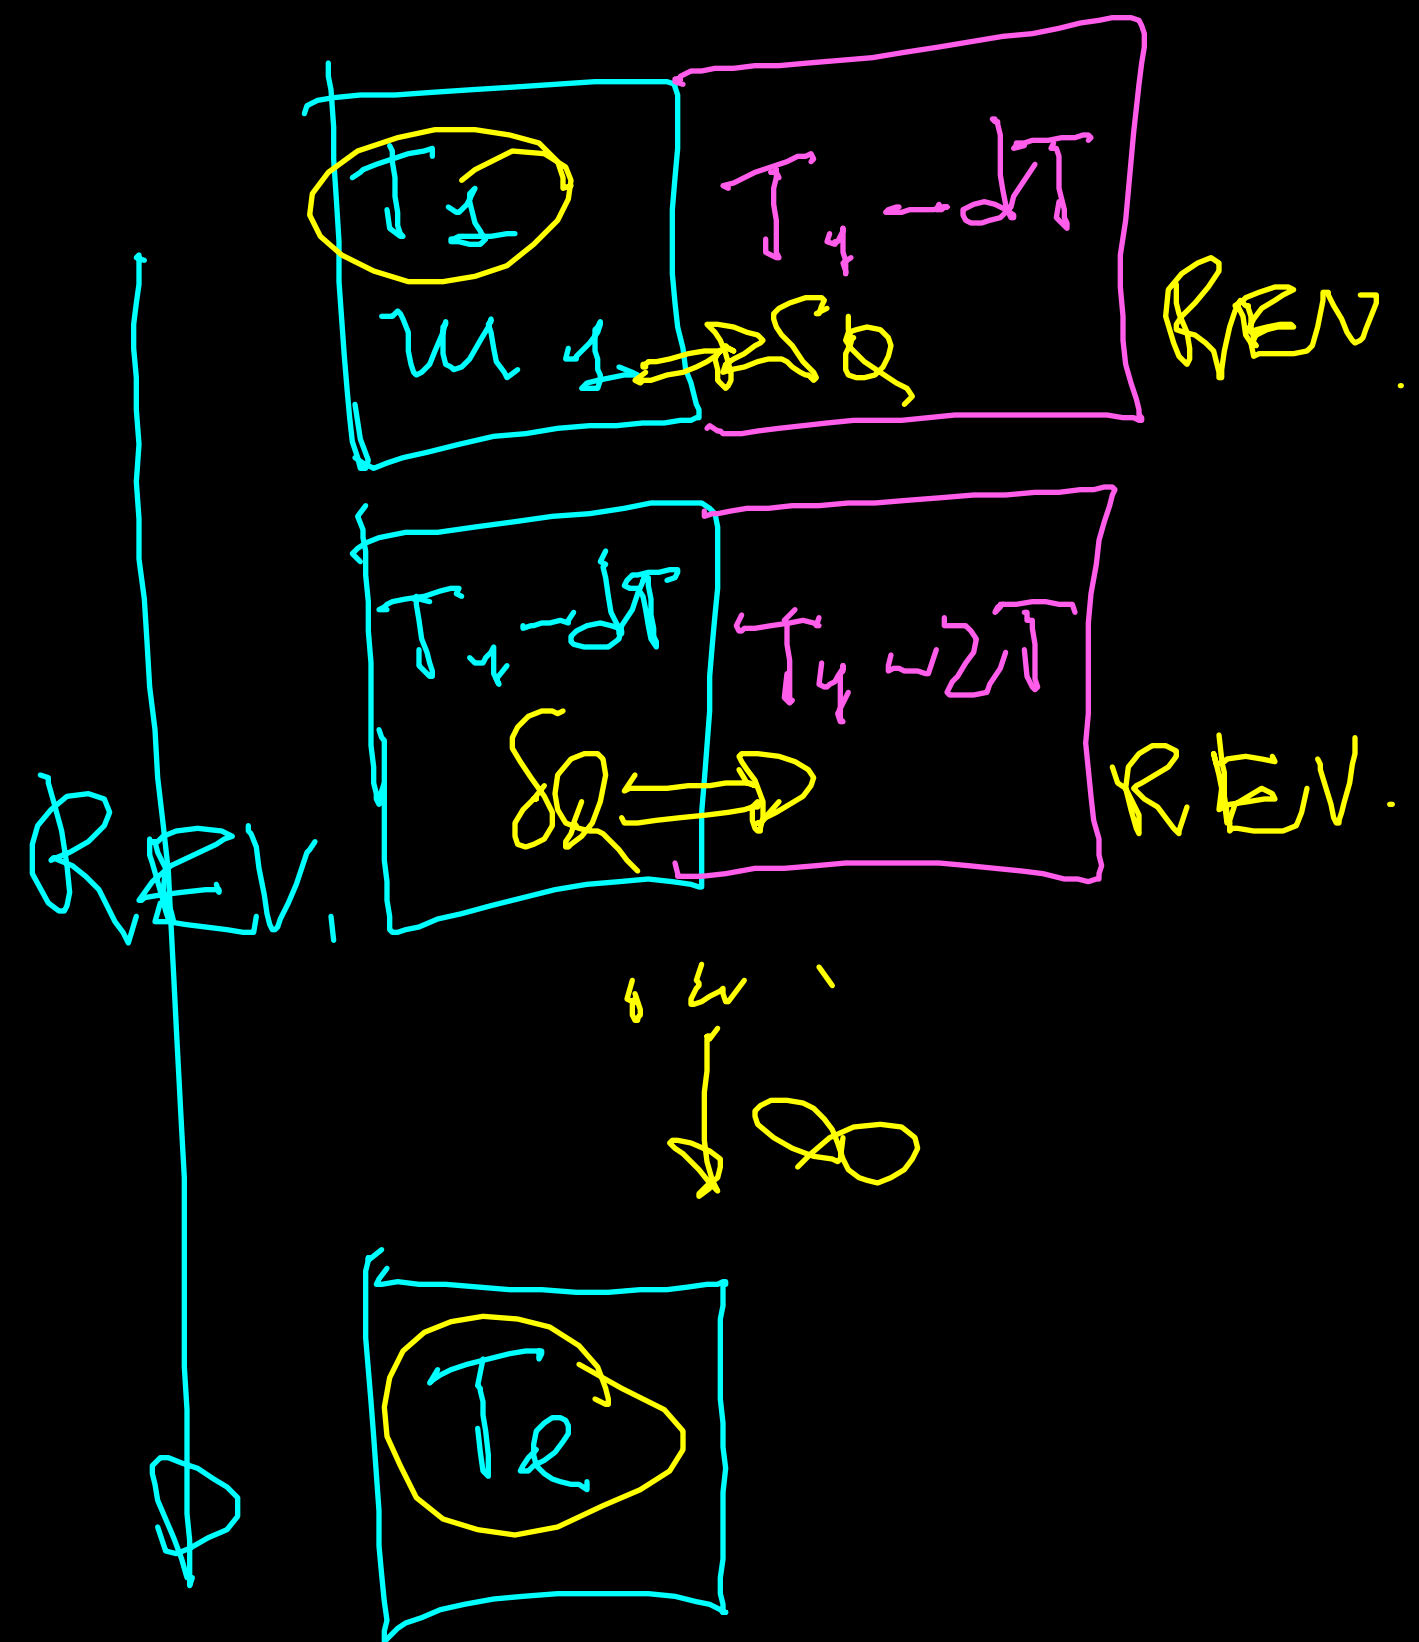 T1 T1 - dT
m1 δQ REV.
T1 - dT T1 - 2dT
δQ REV.
REV.
∞
T2